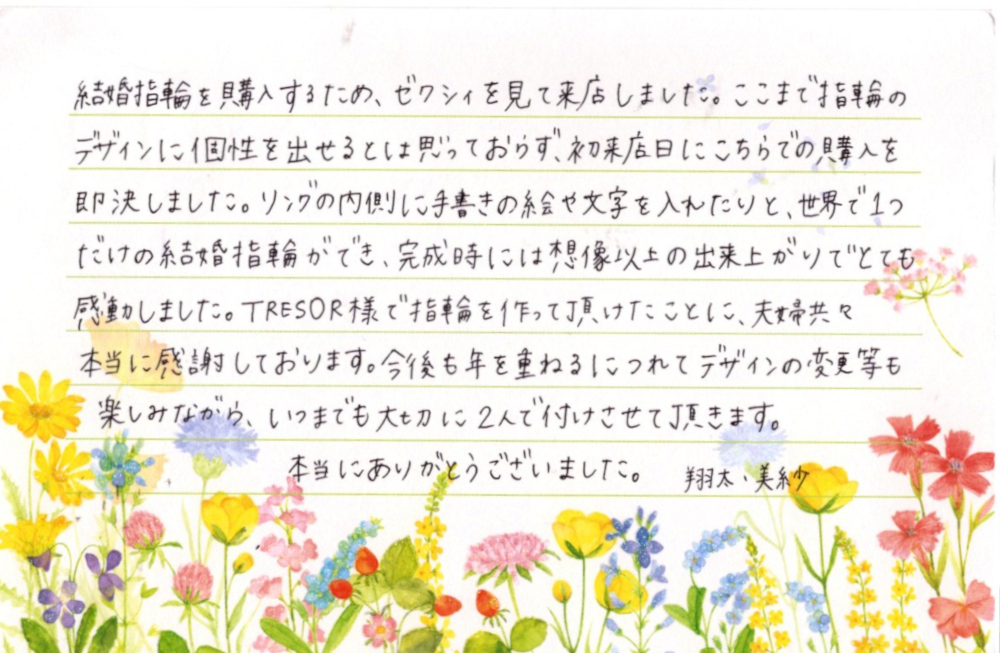 結婚指輪を購入するため、ゼクシィを見て来店しました。ここまで指輪の
デザインに個性を出せるとは思っておらず、初来店日にこちらでの購入を
即決しました。リングの内側に手書きの絵や文字を入れたりと、世界で1つ
だけの結婚指輪ができ、完成時には想像以上の出来上がりでとても
感動しました。TRESOR様で指輪を作って頂けたことに、夫婦共々
本当に感謝しております。今後も年を重ねるにつれてデザインの変更等も
楽しみながら、いつまでも大切に2人で付けさせて頂きます。
本当にありがとうございました。 翔太・美紗